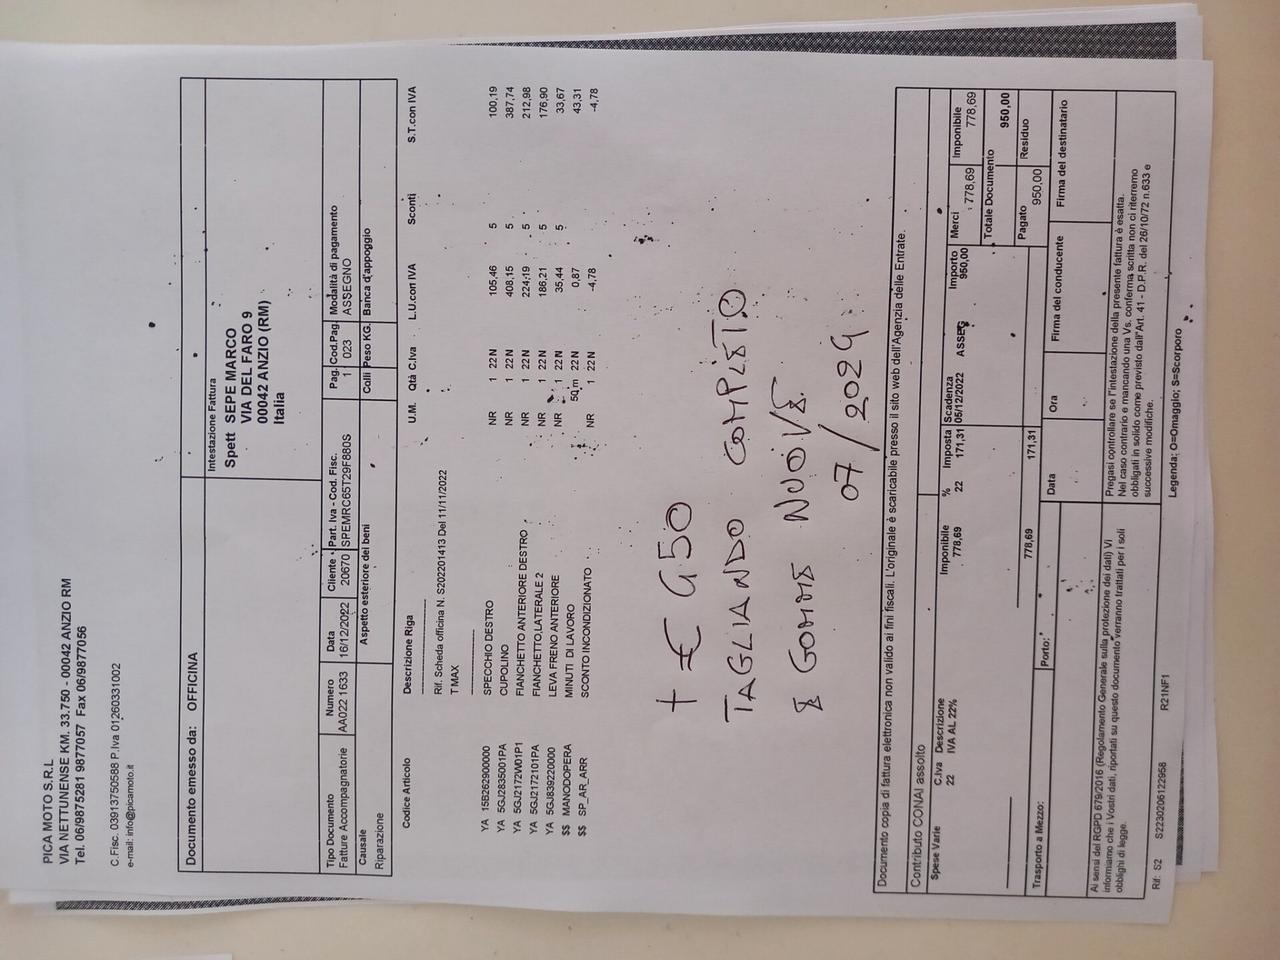 PICA MOTO S.R.L
VIA NETTUNENSE KM. 33,750 - 00042 ANZIO RM
Tel. 06/9875281 9877057 Fax 06/9877056
C.Fisc. 03913750588 P.Iva 01260331002
e-mail: info@picamoto.it
Documento emesso da: OFFICINA
Intestazione Fattura
Spett SEPE MARCO
VIA DEL FARO 9
00042 ANZIO (RM)
Italia
Tipo Documento Numero Data Cliente Part. Iva - Cod. Fisc. Pag. Cod.Pag. Modalità di pagamento
Fatture Accompagnatorie AA022 1633 16/12/2022 20670 SPEMRC65T29F880S 1 023 ASSEGNO
Causale Aspetto esteriore dei beni Colli Peso KG. Banca d'appoggio
Riparazione
Codice Articolo Descrizione Riga U.M. Qtà C.Iva L.U.con IVA Sconti S.T.con IVA
Rif. Scheda officina N. S202201413 Del 11/11/2022
T MAX
YA 15B262900000 SPECCHIO DESTRO NR 1 22 N 105,46 5 100,19
YA 5GJ2835001PA CUPOLINO NR 1 22 N 408,15 5 387,74
YA 5GJ2172W01P1 FIANCHETTO ANTERIORE DESTRO NR 1 22 N 224,19 5 212,98
YA 5GJ2172101PA FIANCHETTO,LATERALE 2 NR 1 22 N 186,21 5 176,90
YA 5GJ839220000 LEVA FRENO ANTERIORE NR 1 22 N 35,44 5 33,67
$$ MANODOPERA MINUTI DI LAVORO 50 m 22 N 0,87 43,31
$$ SP_AR_ARR SCONTO INCONDIZIONATO NR 1 22 N -4,78 -4,78
+ € G50
TAGLIANDO COMPLETO
E GOMME NUOVE
07/2024
Documento copia di fattura elettronica non valido ai fini fiscali. L'originale è scaricabile presso il sito web dell'Agenzia delle Entrate.
Contributo CONAI assolto
Spese Varie C.Iva Descrizione Imponibile % Imposta Scadenza Importo Merci Imponibile
22 IVA AL 22% 778,69 22 171,31 05/12/2022 ASSEG 950,00 778,69 778,69
Totale Documento
950,00
Pagato Residuo
778,69 171,31 950,00
Trasporto a Mezzo: Porto: Data Ora Firma del conducente Firma del destinatario
Ai sensi del RGPD 679/2016 (Regolamento Generale sulla protezione dei dati) Vi
informiamo che i Vostri dati, riportati su questo documento verranno trattati per i soli
obblighi di legge.
Pregasi controllare se l'intestazione della presente fattura è esatta.
Nel caso contrario e mancando una Vs. conferma scritta non ci riterremo
obbligati in solido come previsto dall'Art. 41 - D.P.R. del 26/10/72 n.633 e
successive modifiche.
Rif: S2 S2230206122958 R21NF1 Legenda; O=Omaggio; S=Scorporo